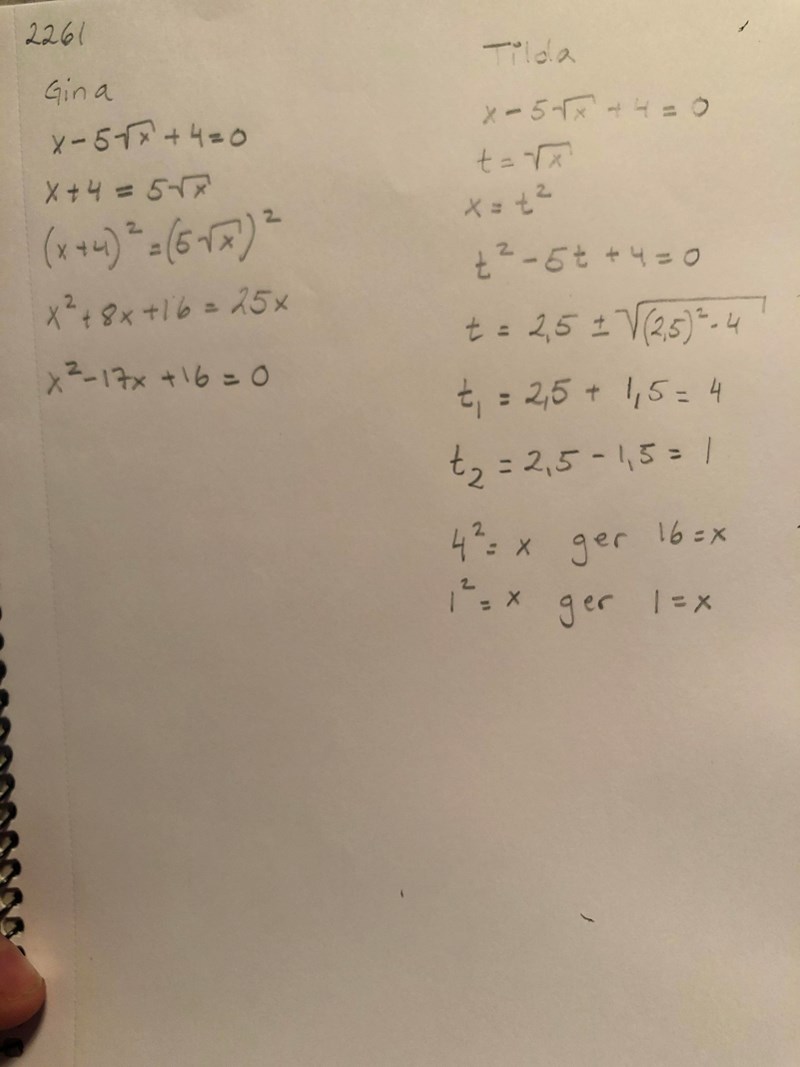 2261
Gina
x - 5√x + 4 = 0
x + 4 = 5√x
(x + 4)² = (5√x)²
x² + 8x + 16 = 25x
x² - 17x + 16 = 0
Tilda
x - 5√x + 4 = 0
t = √x
x = t²
t² - 5t + 4 = 0
t = 2,5 ± √(2,5)² - 4
t₁ = 2,5 + 1,5 = 4
t₂ = 2,5 - 1,5 = 1
4² = x ger 16 = x
1² = x ger 1 = x